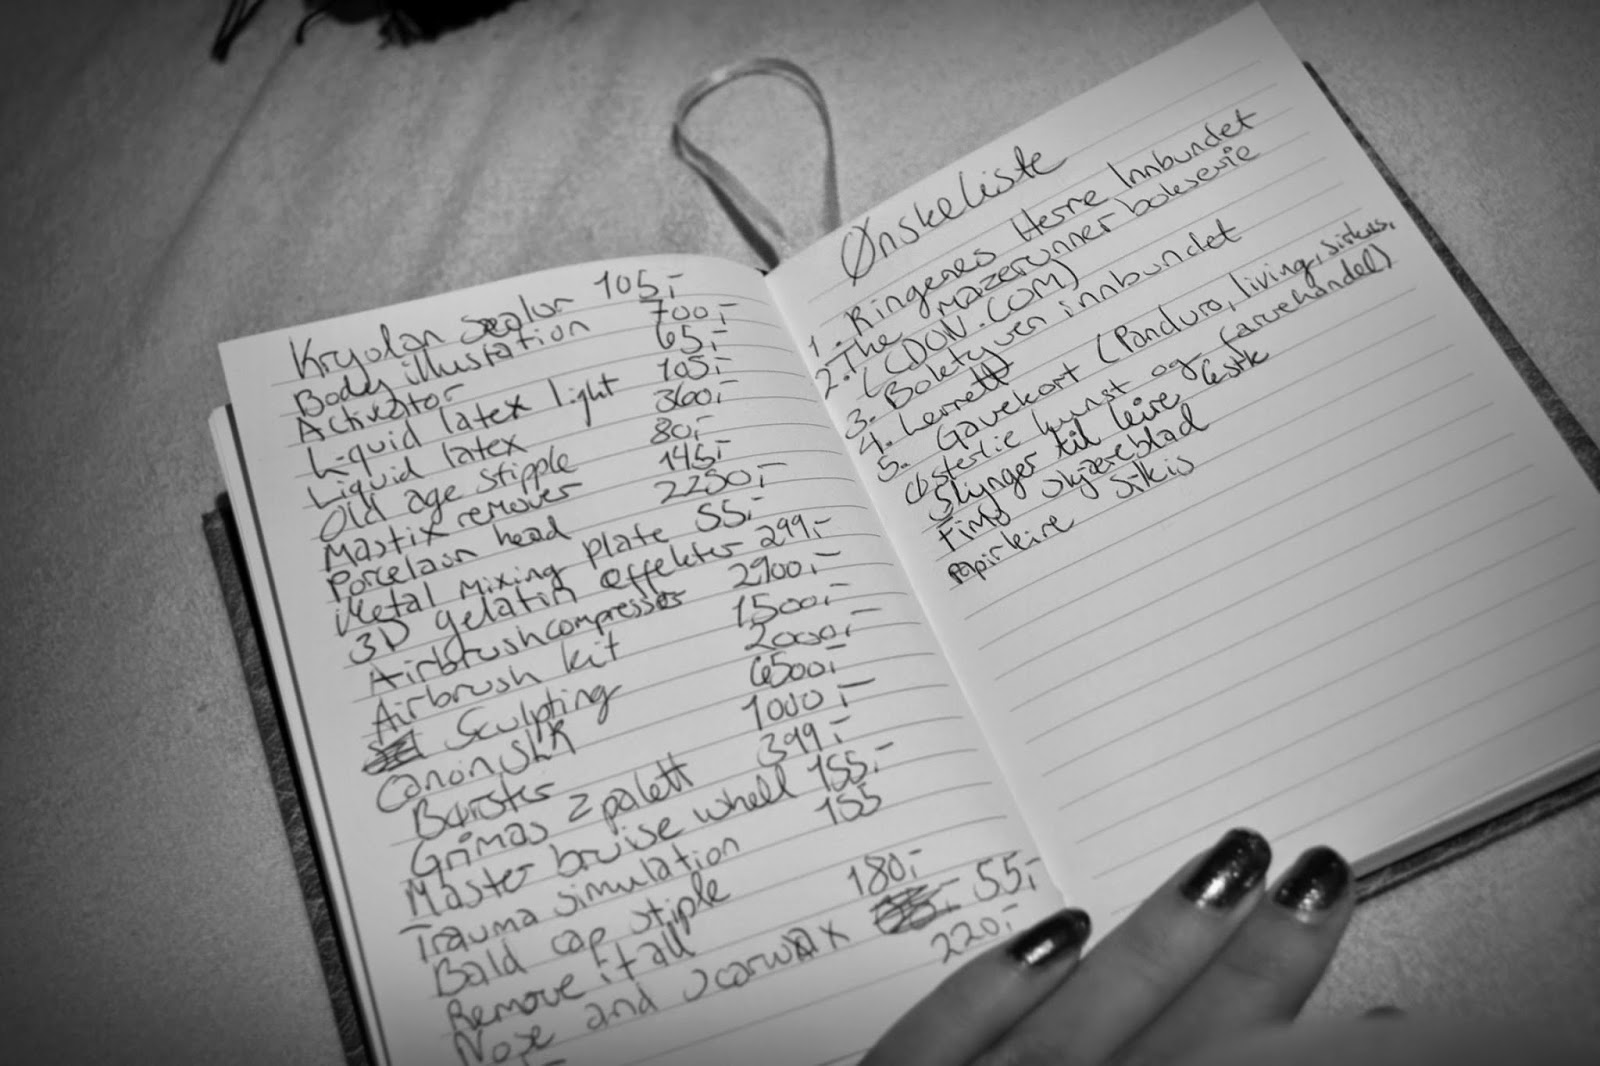 Kryolan Sealor 105,-
Body illustation 700,-
Activator 65,-
Liquid latex light 105,-
Liquid latex 360,-
Old age stipple 80,-
Mastix remover 145,-
Porcelasn head 2250,-
Metal mixing plate 55,-
3D gelatin effekter 299,-
Airbrushcompressor 2900,-
Airbrush kit 1500,-
Sculpting 2000,-
Canon SLR 6500,-
Børster 1000,-
Grimas 2 palett 399,-
Master bruise whell 155,-
Trauma simulation 155
Bald cap stiple
Remove it all 180,-
Nose and scarwax 55,-
220,-
Ønskeliste
1. Ringenes Herre Innbundet
2. The mazerunner bokserie
(CDON.COM)
3. Boktyven innbundet
4. Lerrett
5. Gavekort (Panduro, living, sirkus,
Østerlie kunst og farvehandel)
Slynger til leire
Fimo skjæreblad
Papirleire silkis